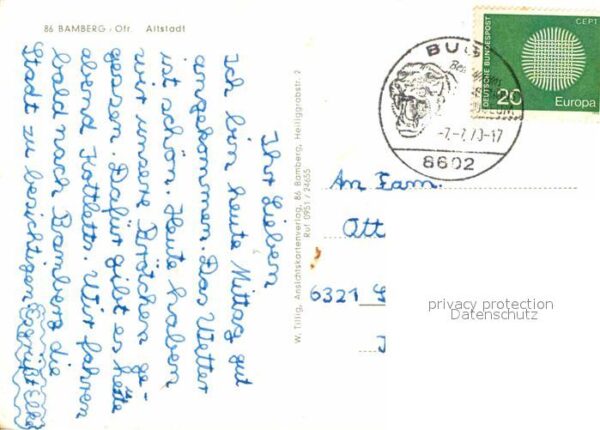 86 BAMBERG, Ofr. Altstadt
Ihr Lieben
Ich bin heute Mittag gut
angekommen. Das Wetter
ist schön. Heute haben
wir unsere Brötchen ge-
gessen. Dafür gibt es heute
abend Kottletts. Wir fahren
bald nach Bamberg die
Stadt zu besichtigen Es grüßt Elke
W. Tillig, Ansichtskartenverlag, 86 Bamberg, Heiliggrabstr. 2
Ruf 0951 / 24655
BUG
-7.-7.70-17
8602
CEPT
DEUTSCHE BUNDESPOST
20
Europa
An Fam.
Ott
6321
privacy protection
Datenschutz